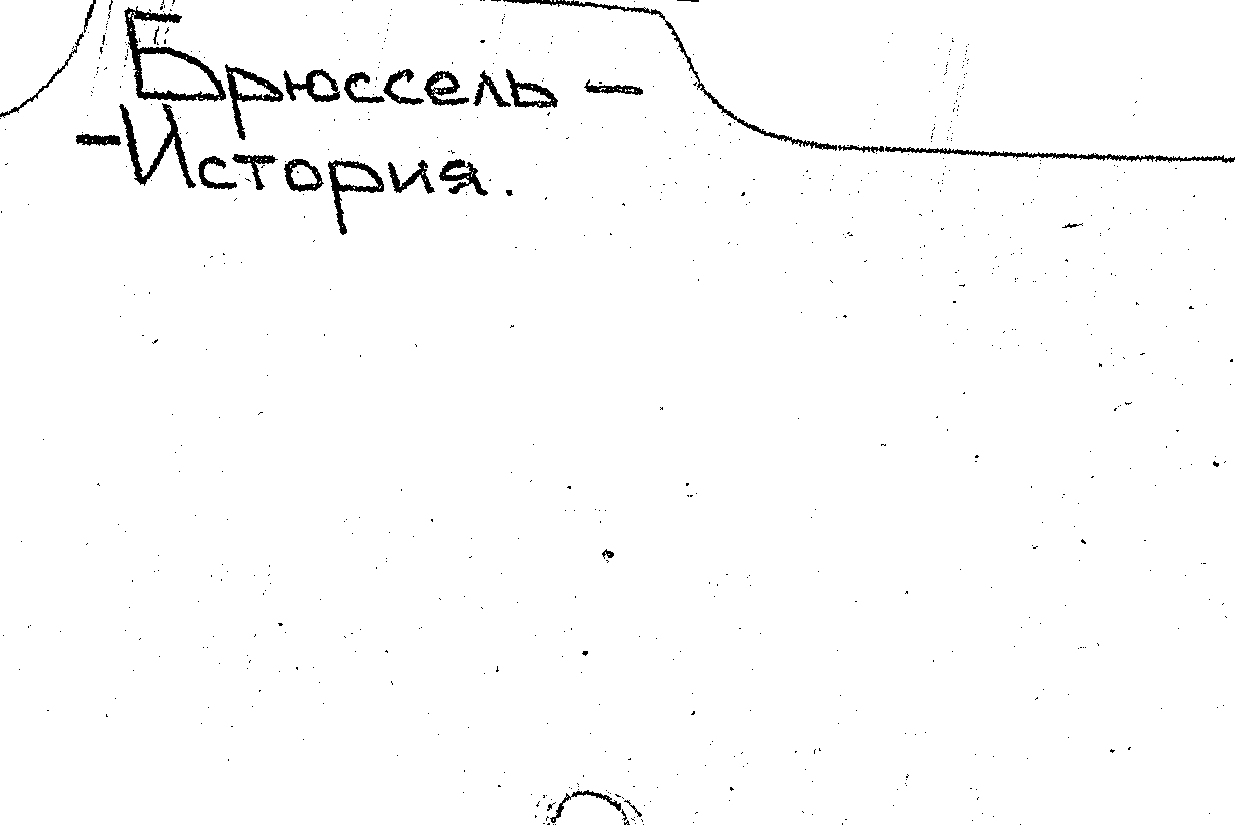 Брюссель –
–История.